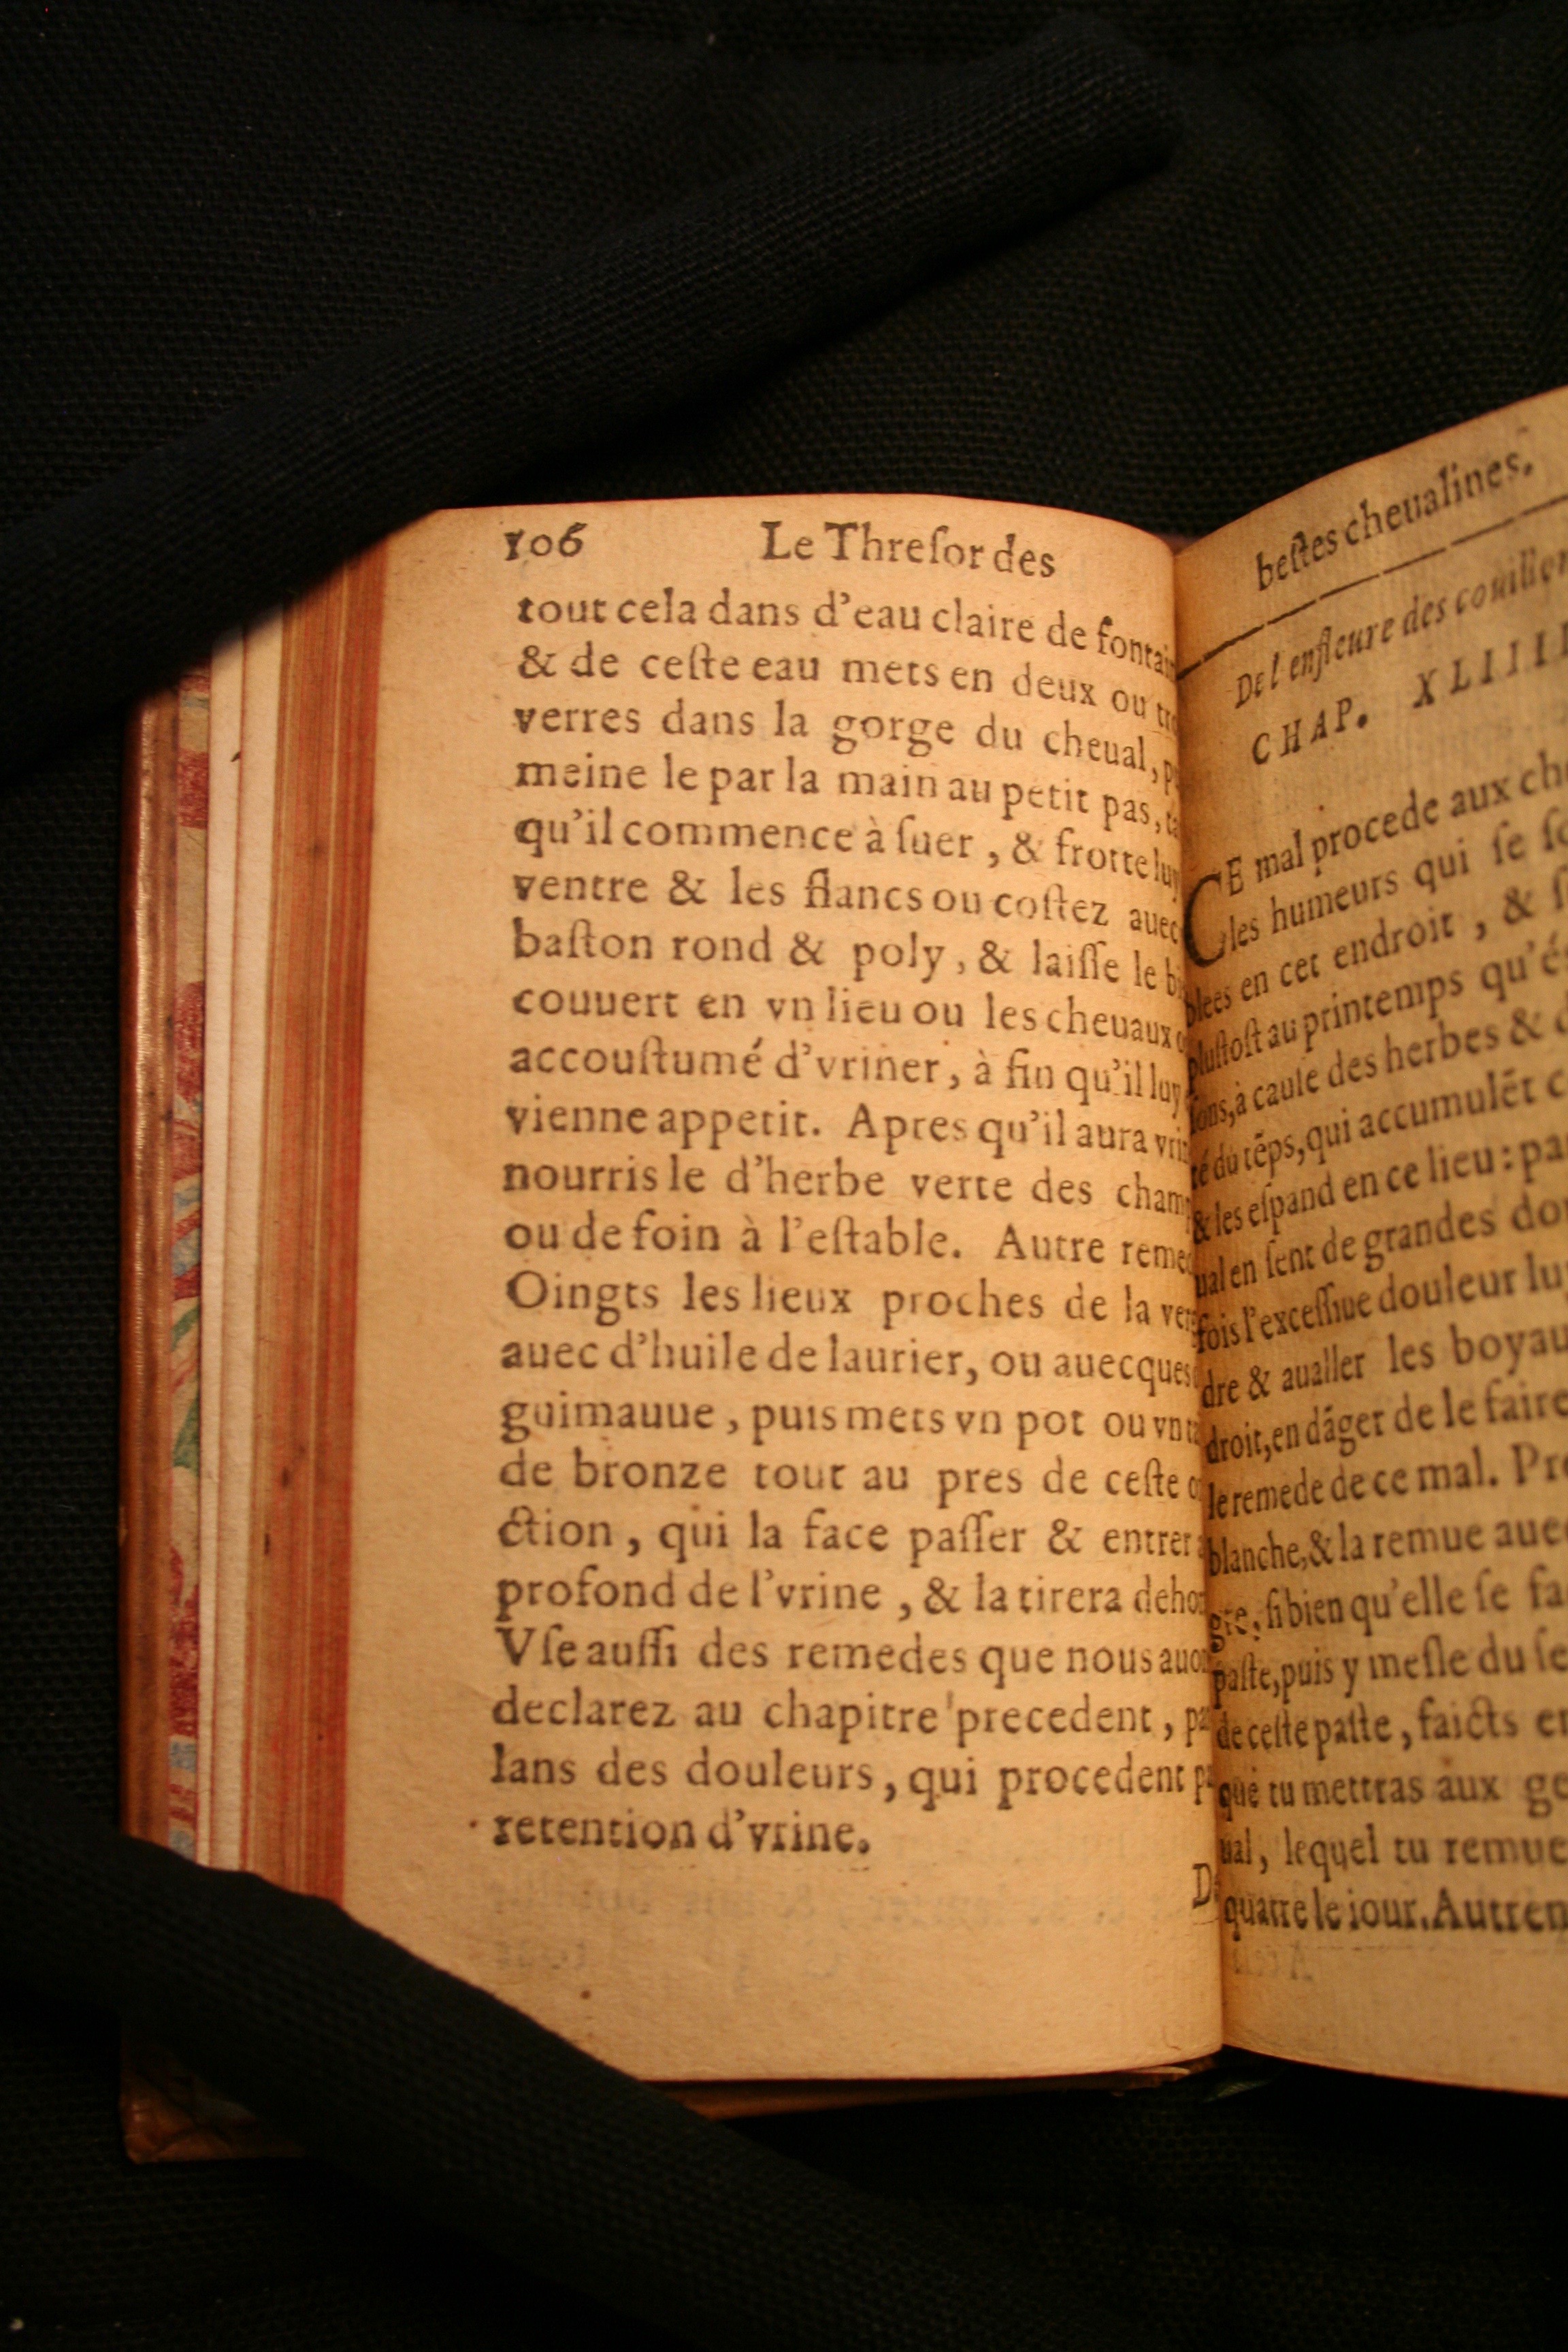 106 Le Threſor des
tout cela dans d'eau claire de
& de ceſte eau mets en deux ou
verres dans la gorge du cheual,
meine le par la main au petit pas,
qu'il commence à ſuer, & frotte luy
ventre & les flancs ou coſtez auec
baſton rond & poly, & laiſſe le
couuert en vn lieu ou les cheuaux
accouſtumé d'vriner, à fin qu'il luy
vienne appetit. Apres qu'il aura
nourris le d'herbe verte des
ou de foin à l'eſtable. Autre
Oingts les lieux proches de la
auec d'huile de laurier, ou auecques
guimauue, puis mets vn pot ou vn
de bronze tout au pres de ceſte
ction, qui la face paſſer & entrer
profond de l'vrine, & la tirera
Vſe auſſi des remedes que nous
declarez au chapitre precedent,
lans des douleurs, qui procedent
retention d'vrine.
beſtes cheualines.
De l'enfleure des
CHAP.
CE mal procede aux
les humeurs qui ſe
blees en cet endroit, &
pluſtoſt au printemps
ſons, à cauſe des herbes &
té du tēps, qui accumulēt
& les eſpand en ce lieu:
ual en ſent de grandes
fois l'exceſſiue douleur
dre & aualler les
droit, en dāger de le faire
le remede de ce mal.
blanche, & la remue
gre, ſi bien qu'elle ſe
paſte, puis y meſle du
de ceſte paſte, faicts
que tu mettras aux
ual, lequel tu
quatre le iour.